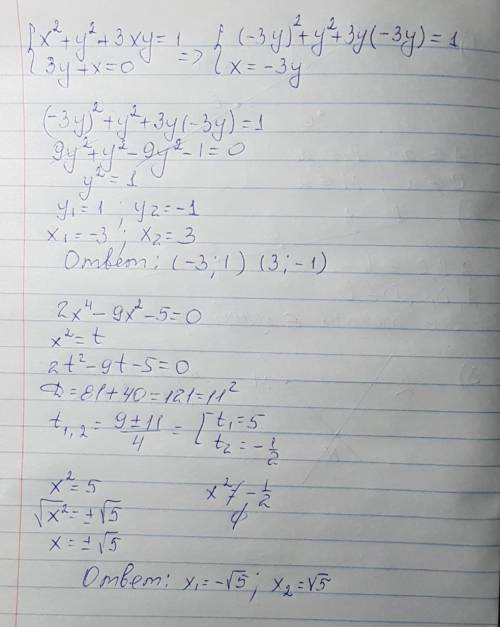 {x²+y²+3xy=1 => {(-3y)²+y²+3y(-3y)=1
{3y+x=0 {x=-3y
(-3y)²+y²+3y(-3y)=1
9y²+y²-9y²-1=0
y²=1
y₁=1 ; y₂=-1
x₁=-3 ; x₂=3
Ответ: (-3;1) (3;-1)
2x⁴-9x²-5=0
x²=t
2t²-9t-5=0
D=81+40=121=11²
t₁,₂=(9±11)/4=[t₁=5
t₂=-1/2
x²=5 x²≠-1/2
√x²=±√5 ∅
x=±√5
Ответ: x₁=-√5; x₂=√5